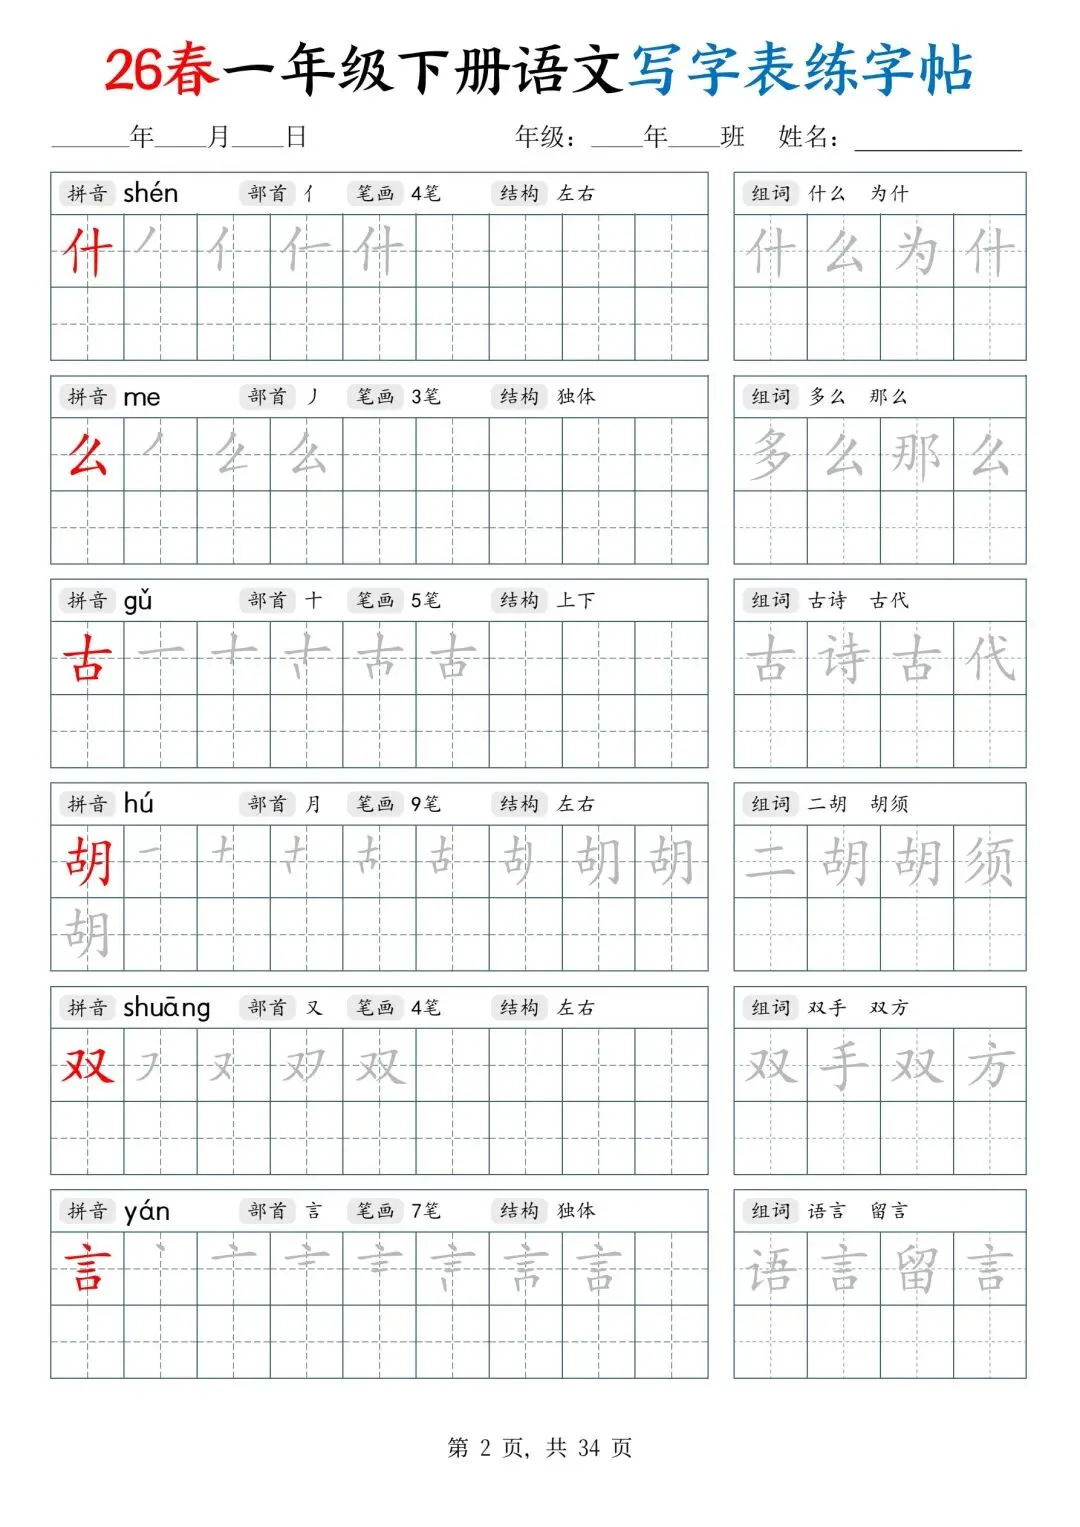 26春一年级下册语文写字表练字帖
______年____月____日 年级：____年____班 姓名：____________
拼音 shén 部首 亻 笔画 4笔 结构 左右 组词 什么 为什
什 丿 亻 什 什 么 为 什
拼音 me 部首 丿 笔画 3笔 结构 独体 组词 多么 那么
么 丿 么 多 么 那 么
拼音 gǔ 部首 十 笔画 5笔 结构 上下 组词 古诗 古代
古 一 十 古 古 诗 古 代
拼音 hú 部首 月 笔画 9笔 结构 左右 组词 二胡 胡须
胡 一 十 古 胡 二 胡 胡 须
胡
拼音 shuāng 部首 又 笔画 4笔 结构 左右 组词 双手 双方
双 フ 又 双 双 手 双 方
拼音 yán 部首 言 笔画 7笔 结构 独体 组词 语言 留言
言 丶 亠 言 语 言 留 言
第 2 页，共 34 页